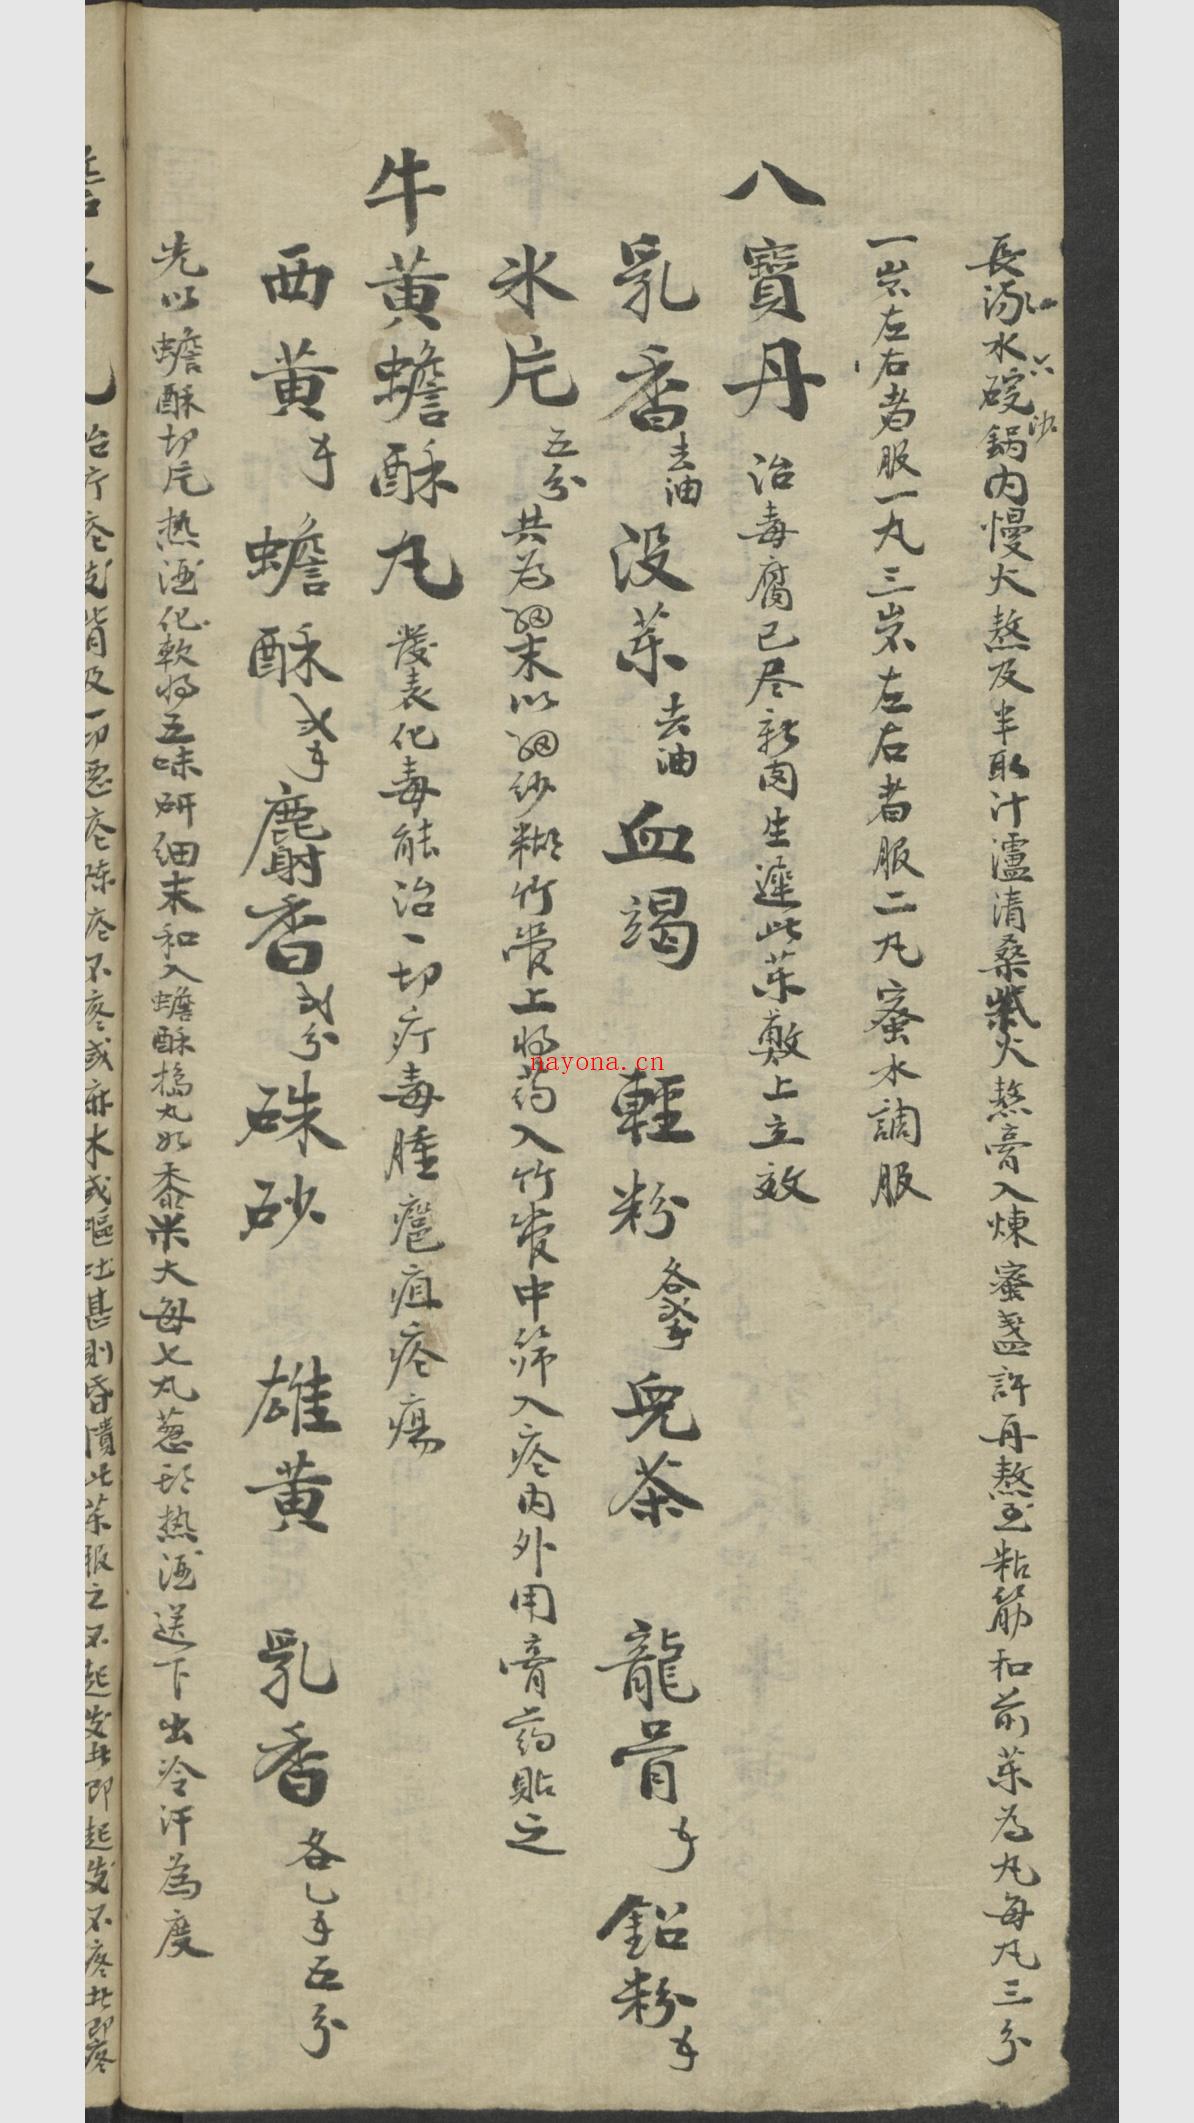 長流水砂鍋内慢火熬及半取汁濾清桑柴火熬膏入煉蜜盞許再熬至粘筋和前藥為丸每丸三分
一岁左右者服一丸三岁左右者服二丸蜜水調服
八寶丹 治毒腐已尽新肉生遲此藥敷上立效
乳香去油 没藥去油 血竭 輕粉各弍手 兒茶 龍骨 鉛粉
氷片五分 共為细末以细纱糊竹管上将药入竹管中筛入疮内外用膏药貼之
牛黄蟾酥丸 發表化毒能治一切疔毒腫癰疽疮瘍
西黄 蟾酥 麝香弍分 硃砂 雄黄 乳香 各乙手五分
先以蟾酥切片热酒化軟将五味研细末和入蟾酥搗丸如黍米大每七丸葱头热酒送下出冷汗為度
治疔疮发背及一切恶疮陈疮不疼或麻木或嘔吐甚则昏憒此藥服之不起发者即起发不疼者即疼
nayona.cn